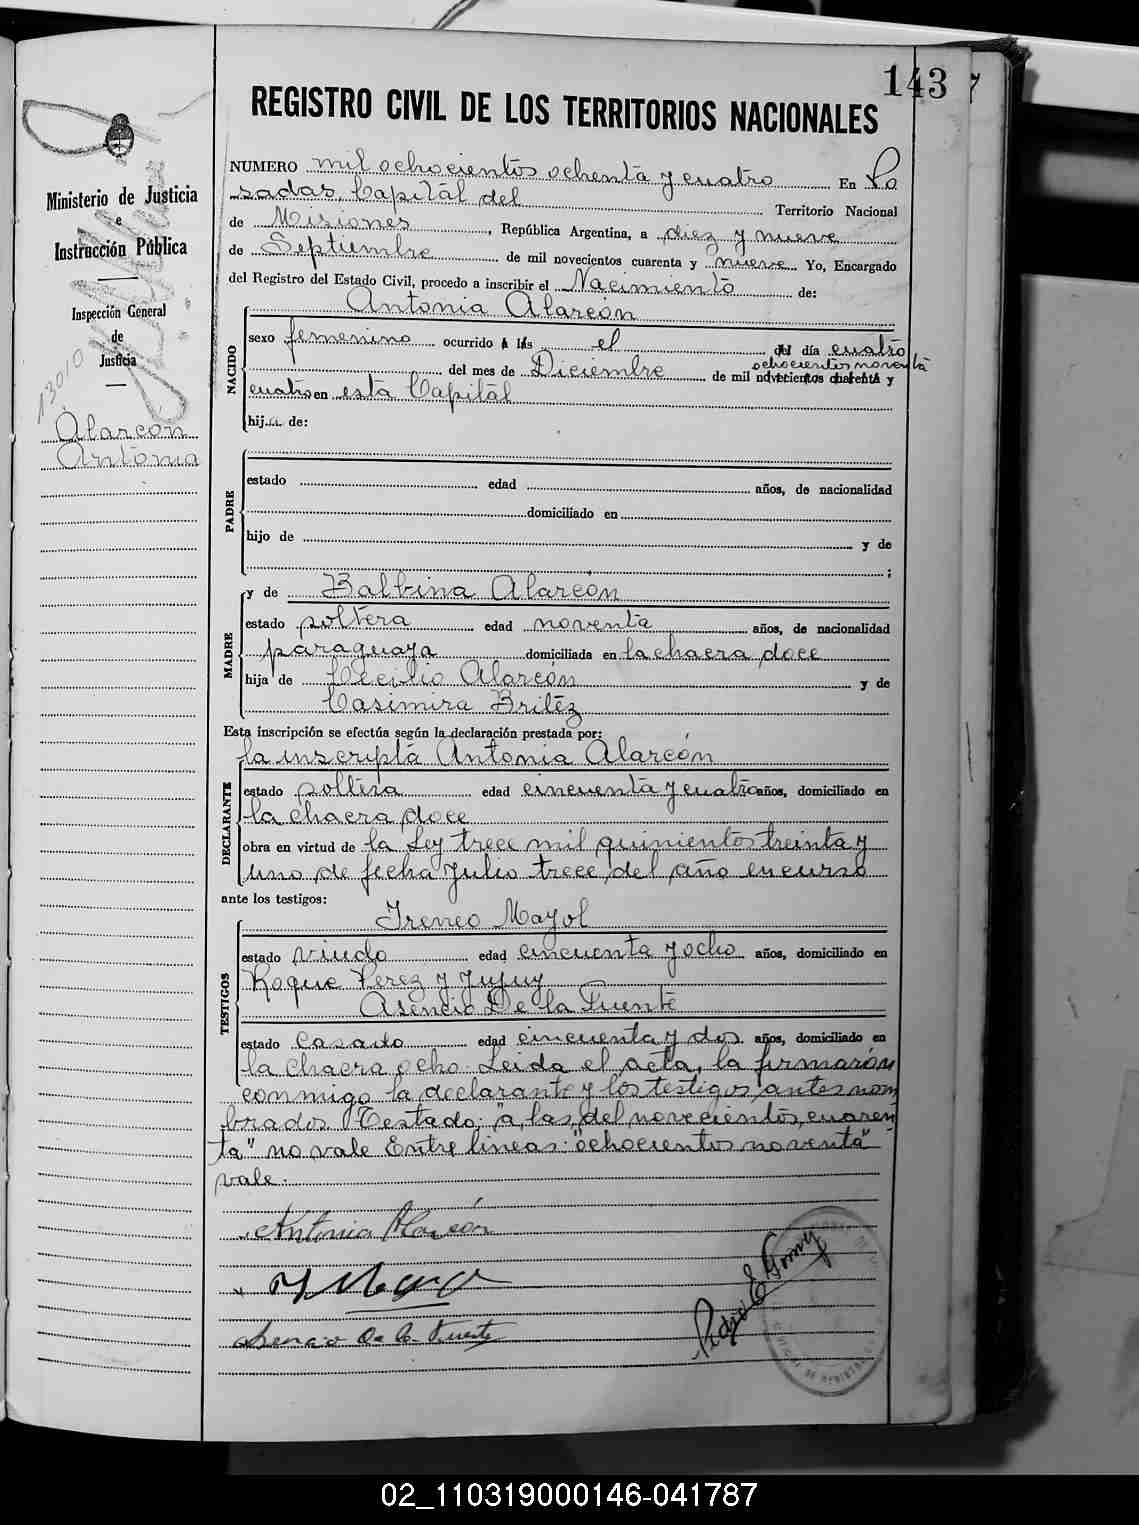 143
REGISTRO CIVIL DE LOS TERRITORIOS NACIONALES
Ministerio de Justicia
e
Instrucción Pública
Inspección General
de
Justicia
13010
Alarcón
Antonia
NUMERO mil ochocientos ochenta y cuatro En Po
sadas, Capital del Territorio Nacional
de Misiones, República Argentina, a diez y nueve
de Septiembre de mil novecientos cuarenta y nueve Yo, Encargado
del Registro del Estado Civil, procedo a inscribir el Nacimiento de:
NACIDO
Antonia Alarcón
sexo femenino ocurrido a las el del día cuatro
ochocientos noventa
del mes de Diciembre de mil novecientos cuarenta y
cuatro en esta Capital
hija de:
PADRE
estado edad años, de nacionalidad
domiciliado en
hijo de y de
;
MADRE
y de Balbina Alarcón
estado soltera edad noventa años, de nacionalidad
paraguaya domiciliada en la chacra doce
hija de Cecilio Alarcón y de
Casimira Britéz
Esta inscripción se efectúa según la declaración prestada por:
DECLARANTE
la inscripta Antonia Alarcón
estado soltera edad cincuenta y cuatro años, domiciliado en
la chacra doce
obra en virtud de la Ley trece mil quinientos treinta y
uno de fecha Julio trece del año en curso
ante los testigos:
TESTIGOS
Ireneo Mayol
estado viudo edad cincuenta y ocho años, domiciliado en
Roque Perez y Jujuy
Asencio De la Fuente
estado casado edad cincuenta y dos años, domiciliado en
la chacra ocho. Leida el acta, la firmarón
conmigo la declarante y los testigos antes nom
brados. Testado: "a las, del novecientos, cuaren
ta" no vale Entre lineas: "ochocientos noventa"
vale.
Antonia Alarcón
Asencio De la Fuente
02_110319000146-041787